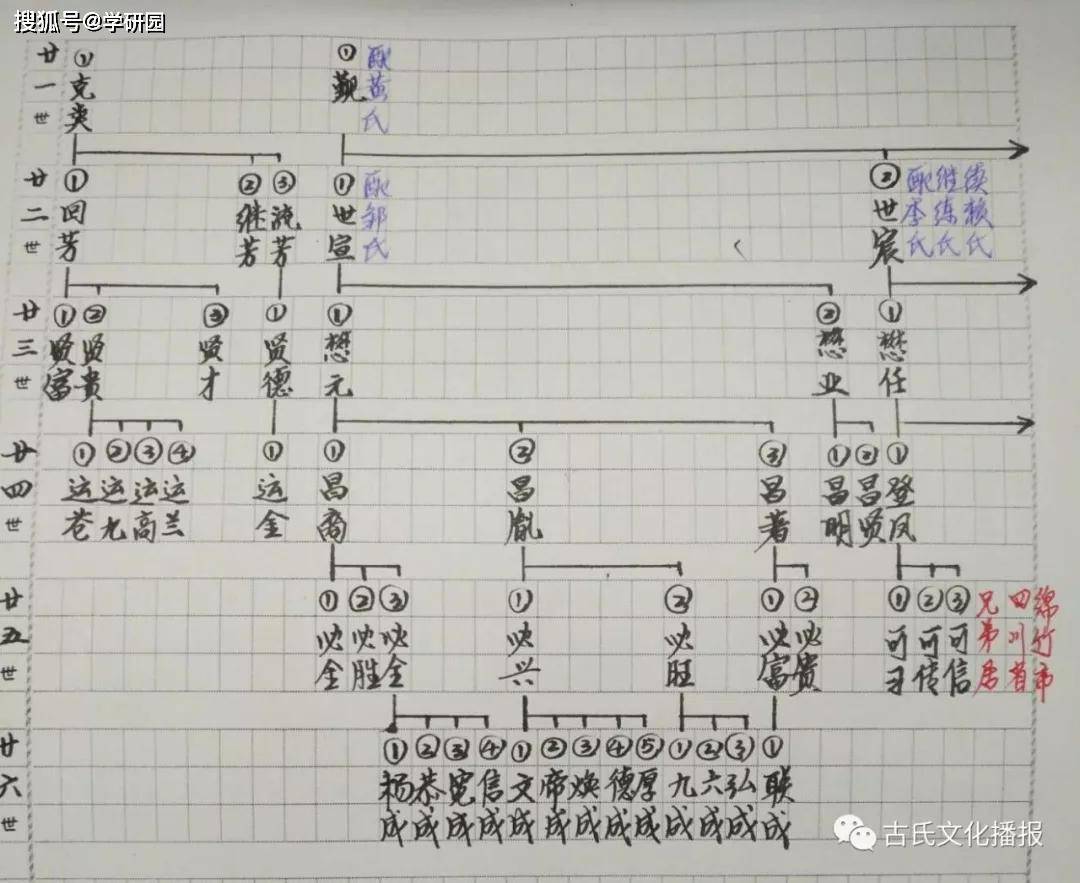 搜狐号@学研园
廿一世
①克类
①觐
配黄氏
廿二世
①回芳
②继芳
③沌芳
①世宣
配邹氏
②世宸
配李氏
继练氏
续赖氏
廿三世
①贤富
②贤贵
③贤才
①贤德
①懋元
②懋业
①懋任
廿四世
①运苍
②运九
③运高
④运兰
①运金
①昌裔
②昌胤
③昌著
①昌明
②昌贤
①登凤
廿五世
①必全
②必胜
③必全
①必兴
②必旺
①必富
②必贵
①可习
②可传
③可信
兄弟居
四川省
绵竹市
廿六世
①杨成
②恭成
③宽成
④信成
①文成
②帝成
③焕成
④德成
⑤厚成
①九成
②六成
③弘成
①联成
古氏文化播报